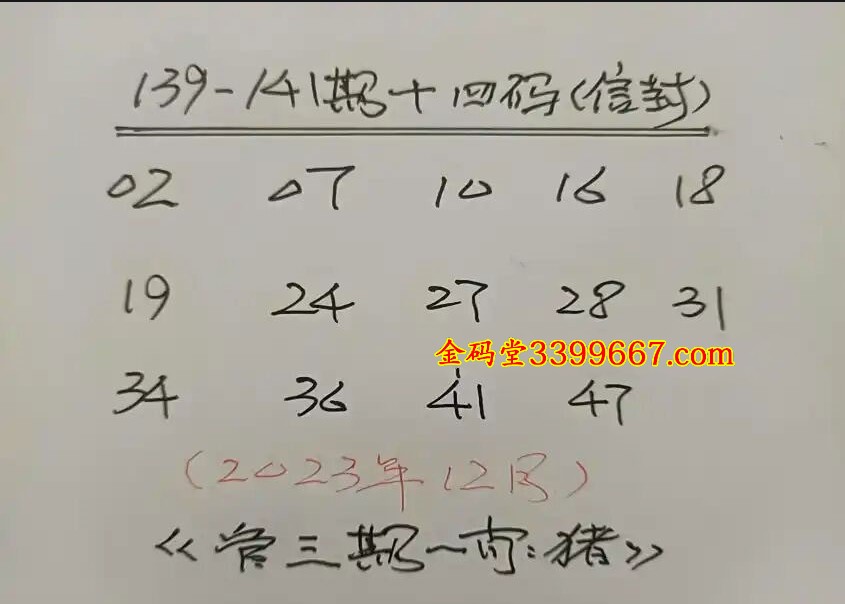 139-141期十四码(信封)
02 07 10 16 18
19 24 27 28 31
金码堂3399667.com
34 36 41 47
(2023年12月)
《管三期一肖:猪》